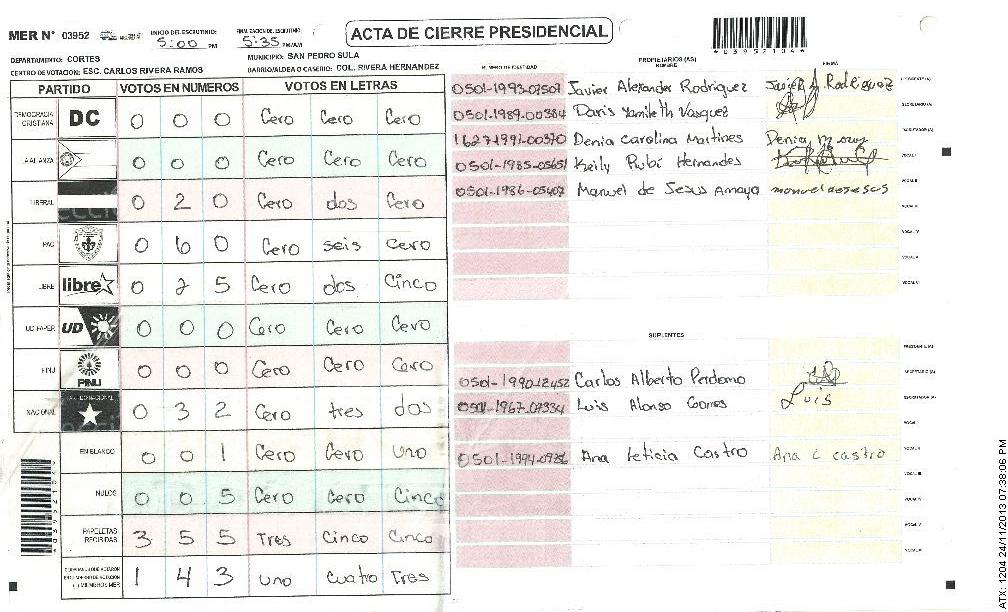 MER N° 03952 INICIO DEL ESCRUTINIO: 5:00 PM FINALIZACION DEL ESCRUTINIO: 5:35 PM/AM ACTA DE CIERRE PRESIDENCIAL
DEPARTAMENTO: CORTES MUNICIPIO: SAN PEDRO SULA
CENTRO DE VOTACION: ESC. CARLOS RIVERA RAMOS BARRIO/ALDEA O CASERIO: COL. RIVERA HERNANDEZ
PARTIDO VOTOS EN NUMEROS VOTOS EN LETRAS
DEMOCRACIA CRISTIANA DC 0 0 0 Cero Cero Cero
LA ALIANZA 0 0 0 Cero Cero Cero
LIBERAL 0 2 0 Cero dos Cero
PAC 0 6 0 Cero seis cero
LIBRE libre 0 2 5 Cero dos Cinco
UD-FAPER UD 0 0 0 Cero Cero Cero
PINU PINU 0 0 0 Cero Cero Cero
NACIONAL 0 3 2 Cero tres dos
EN BLANCO 0 0 1 Cero Cero uno
NULOS 0 0 5 Cero Cero Cinco
PAPELETAS RECIBIDAS 3 5 5 Tres Cinco Cinco
1 4 3 uno cuatro Tres
NUMERO DE IDENTIDAD PROPIETARIOS (AS) NOMBRE FIRMA
0501-1993-07509 Javier Alexander Rodriguez Javier A. Rodriguez PRESIDENTE(A)
0501-1989-00384 Daris Yamileth Vasquez SECRETARIO (A)
1627-1991-00370 Denia Carolina Martines Denia ESCRUTADOR (A)
0501-1985-05651 Keily Rubi Hernandes VOCAL I
0501-1986-05407 Manuel de Jesus Amaya manuel de Jesus VOCAL II
VOCAL III
VOCAL IV
VOCAL V
VOCAL VI
SUPLENTES
PRESIDENTE (A)
0501-1990-12452 Carlos Alberto Perdomo SECRETARIO (A)
0501-1967-07334 Luis Alonso Gomes Luis ESCRUTADOR (A)
VOCAL I
0501-1994-0936 Ana Leticia Castro Ana L castro VOCAL II
VOCAL III
VOCAL IV
VOCAL V
VOCAL VI
ATX: 1204 24/11/2013 07:38:06 PM